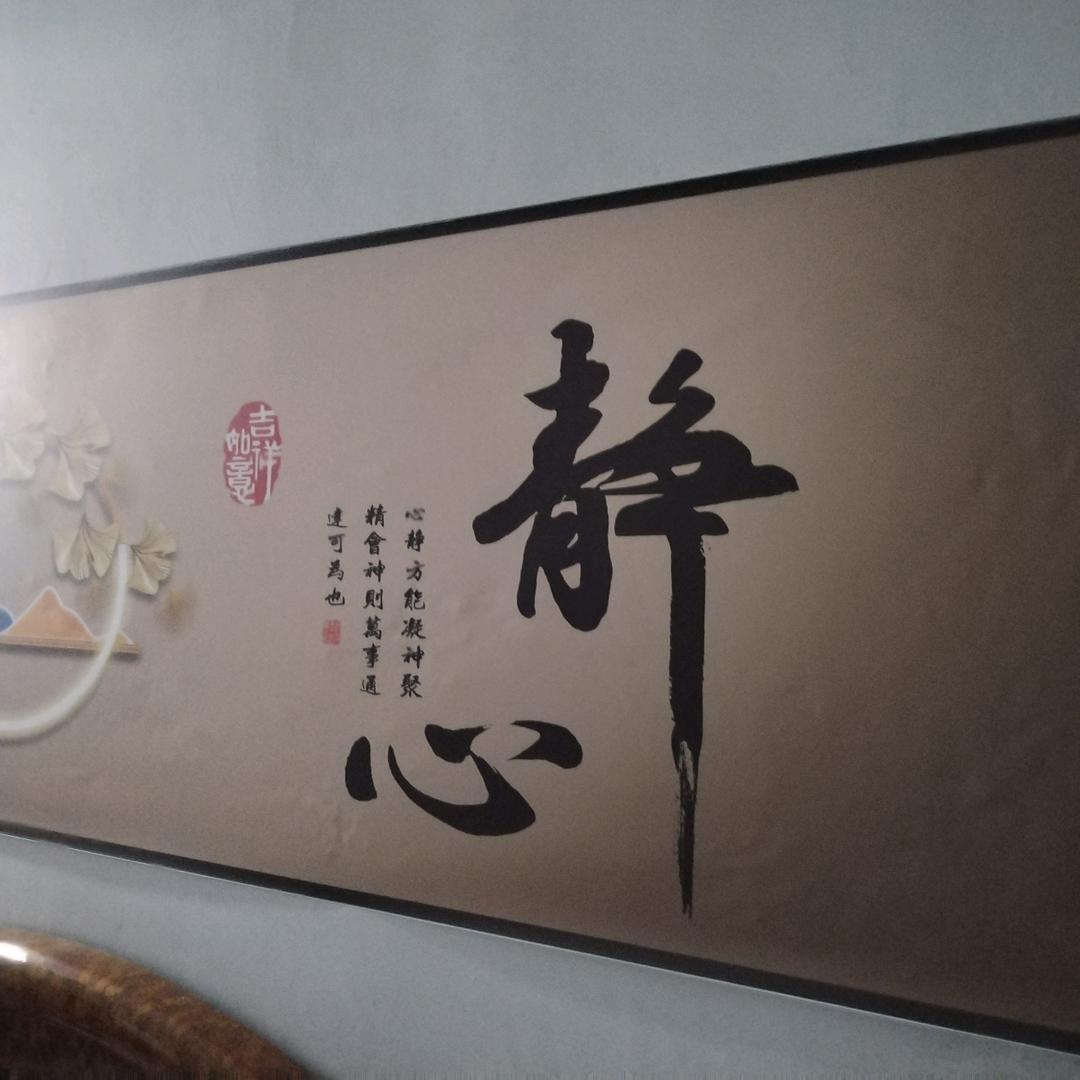 靜心
心靜方能凝神聚
精會神則萬事通
達可為也
吉祥
如意